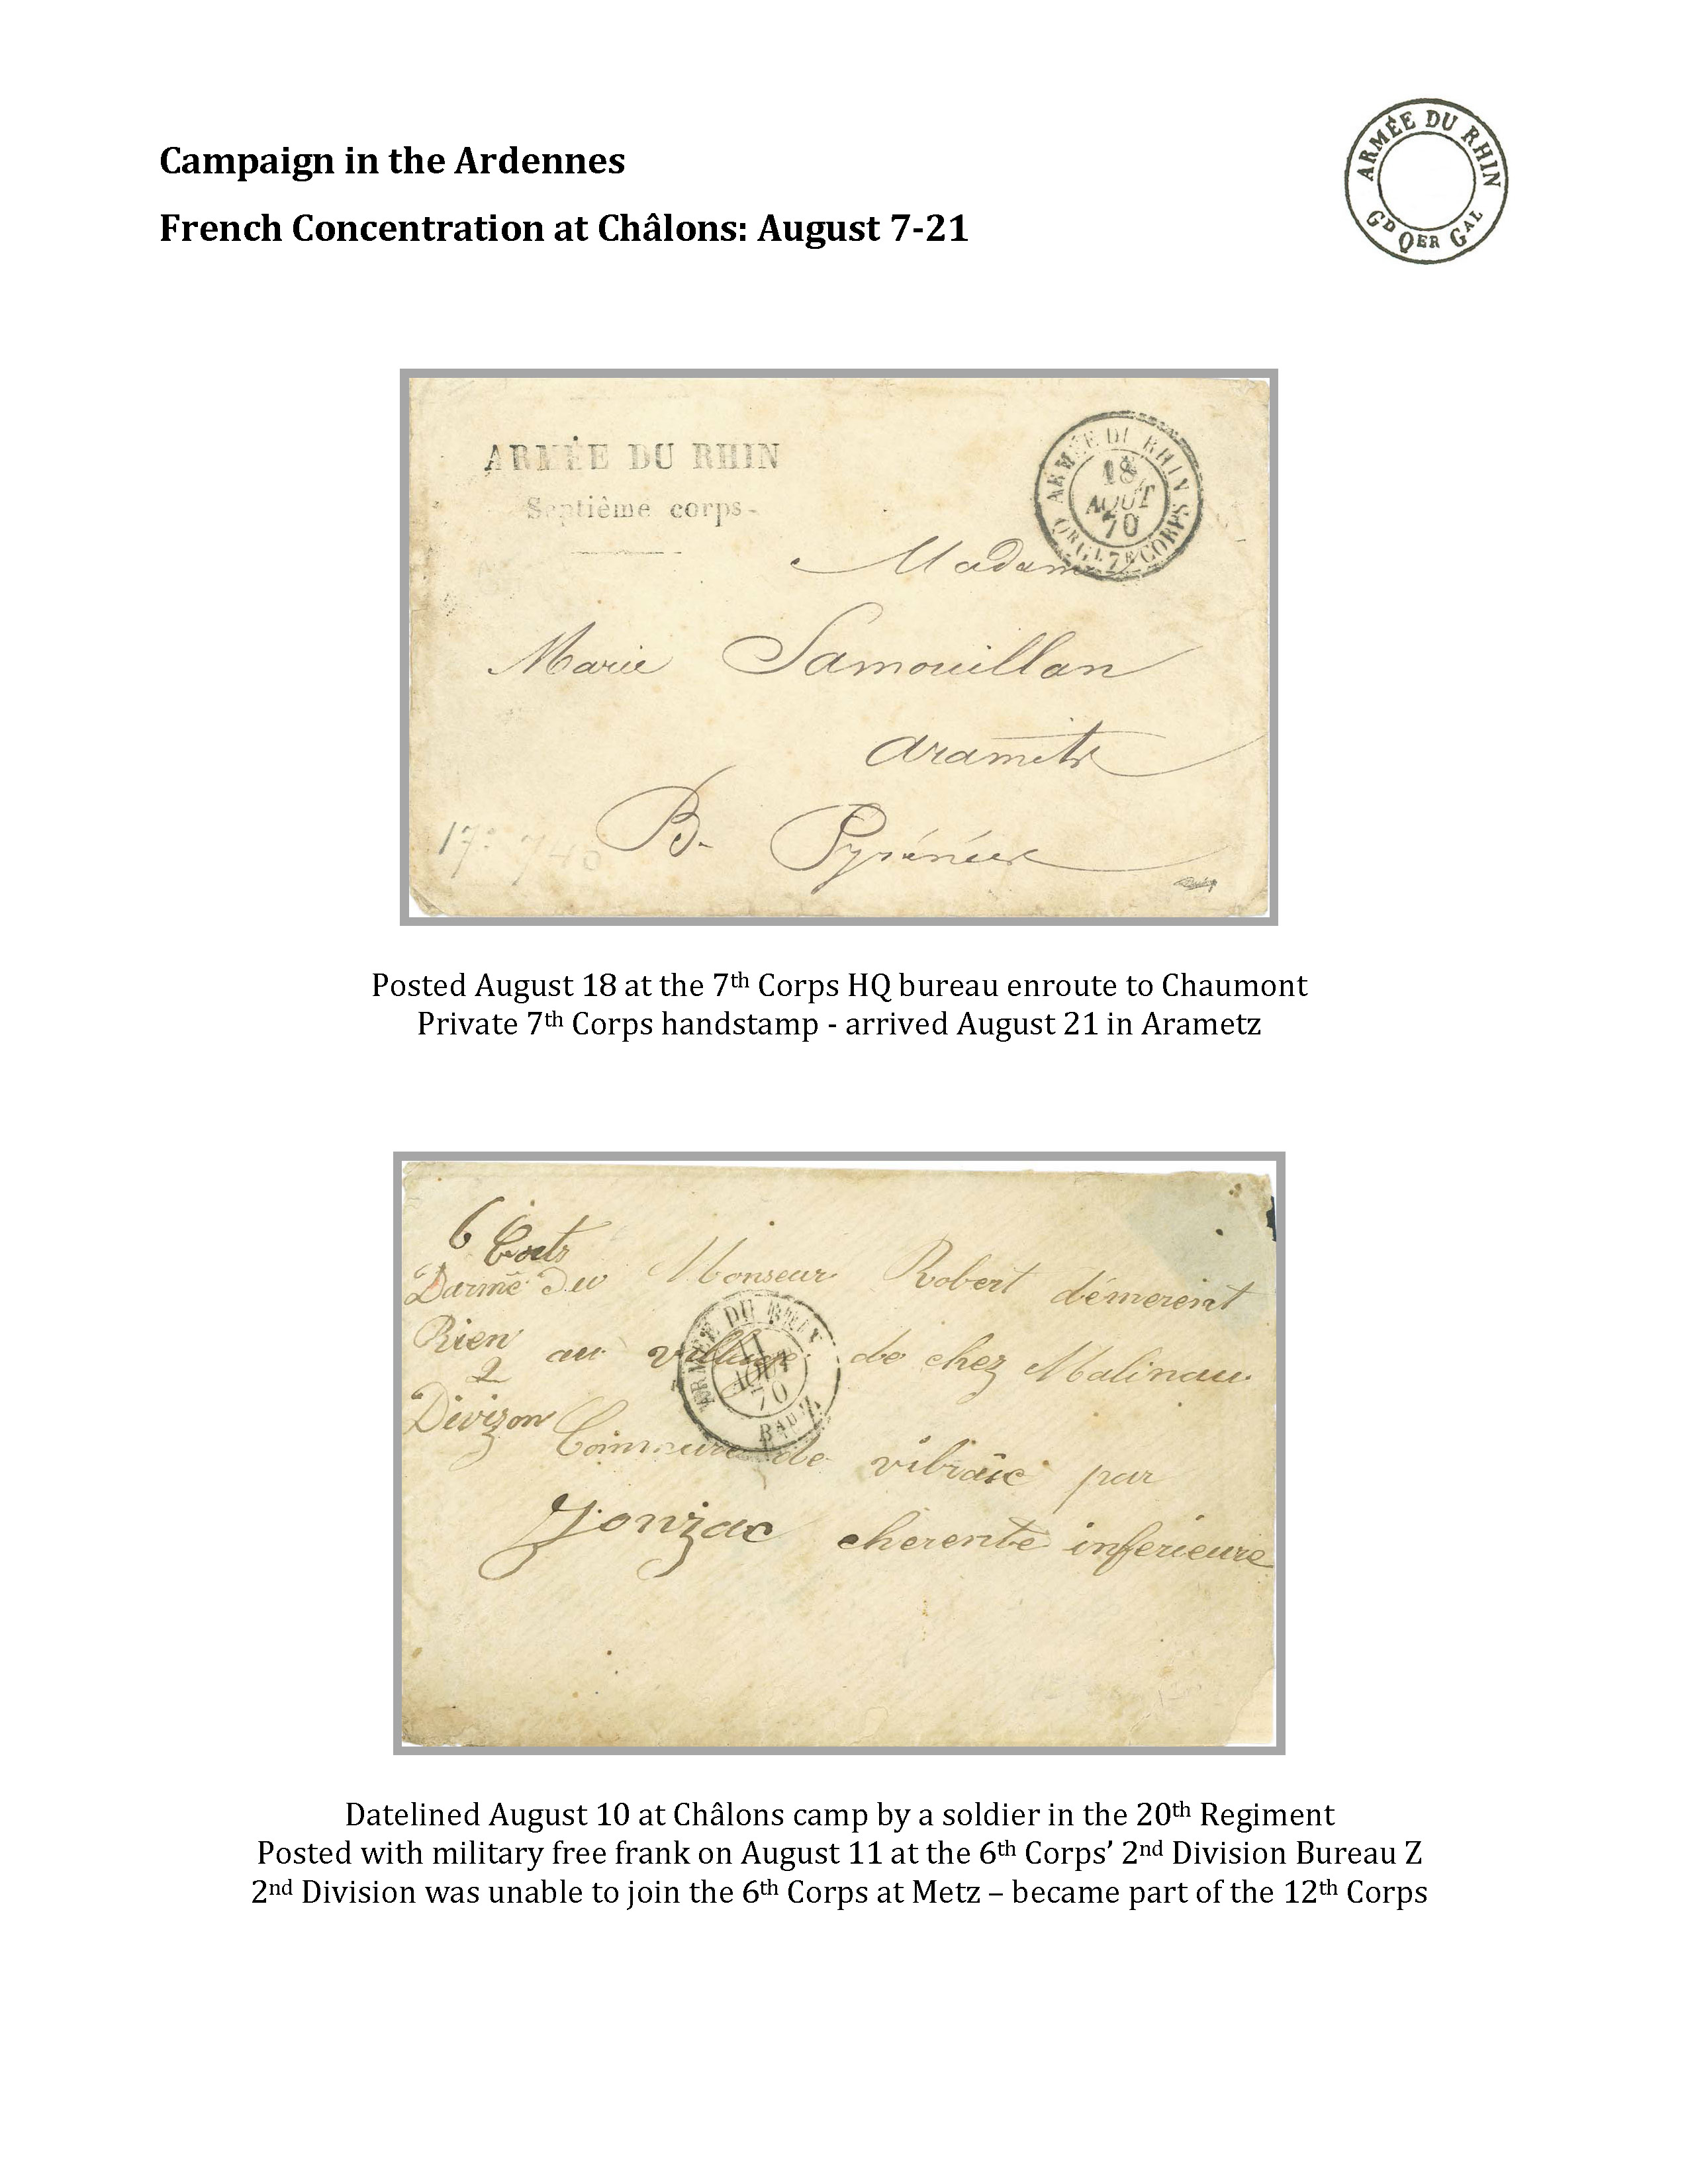 Campaign in the Ardennes
French Concentration at Châlons: August 7-21
ARMÉE DU RHIN
GD QER GAL
ARMÉE DU RHIN
Septième corps
ARMÉE DU RHIN
18
AOUT
70
7E CORPS
Madame
Marie Samouillan
Aramits
B. Pyrénées
Posted August 18 at the 7th Corps HQ bureau enroute to Chaumont
Private 7th Corps handstamp - arrived August 21 in Arametz
6 Corts
Darmé du
Rien
2
Divizon
Monseur Robert démerent
au village de chez Malinau
de vibraic par
Jonzac cherente inferieure
ARMÉE DU RHIN
11
AOUT
70
BAU Z
Datelined August 10 at Châlons camp by a soldier in the 20th Regiment
Posted with military free frank on August 11 at the 6th Corps’ 2nd Division Bureau Z
2nd Division was unable to join the 6th Corps at Metz – became part of the 12th Corps